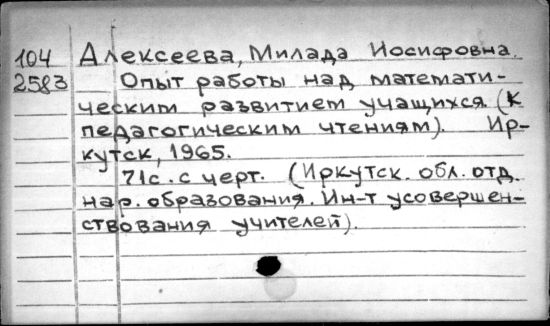 104 Алексеева, Милада Иосифовна.
2583 Опыт работы над математи-
ческим развитием учащихся. (К
педагогическим чтениям). Ир-
кутск, 1965.
71с. с черт. (Иркутск. обл. отд.
нар. образования. Ин-т усовершен-
ствования учителей).